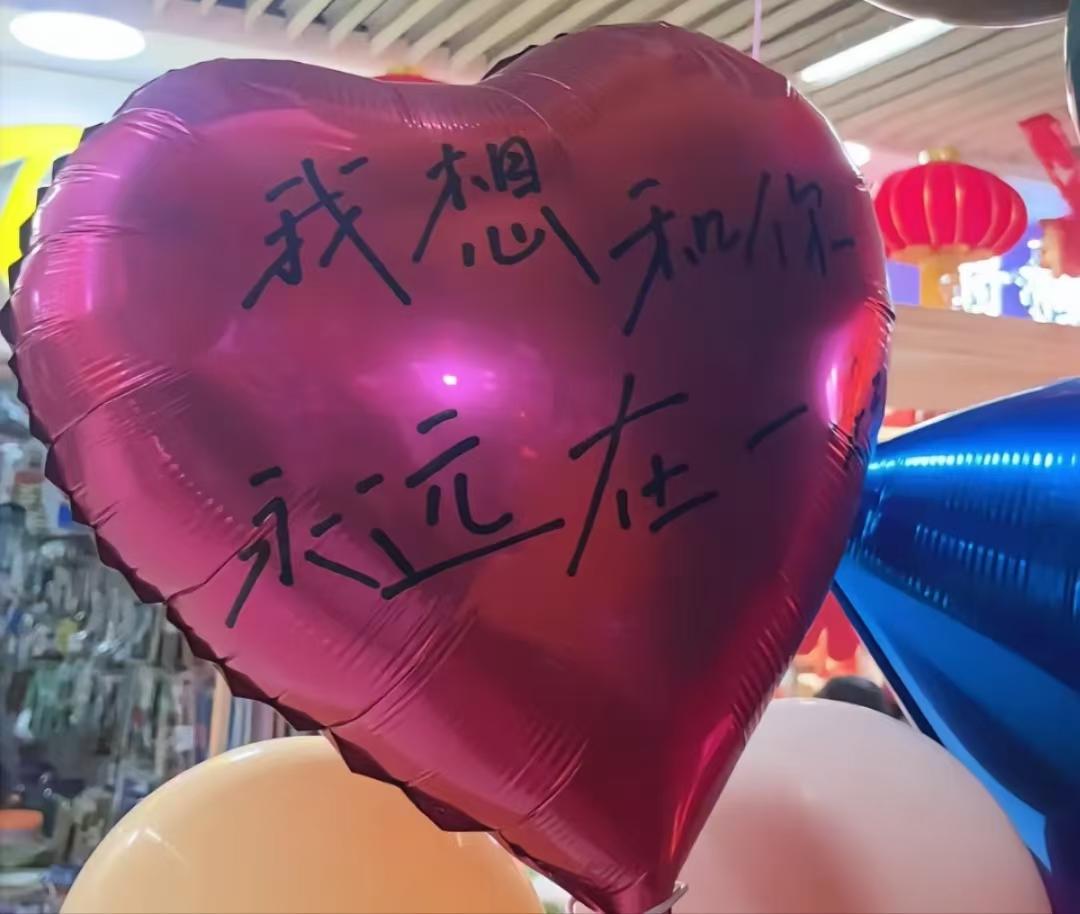 我想和你
永远在一